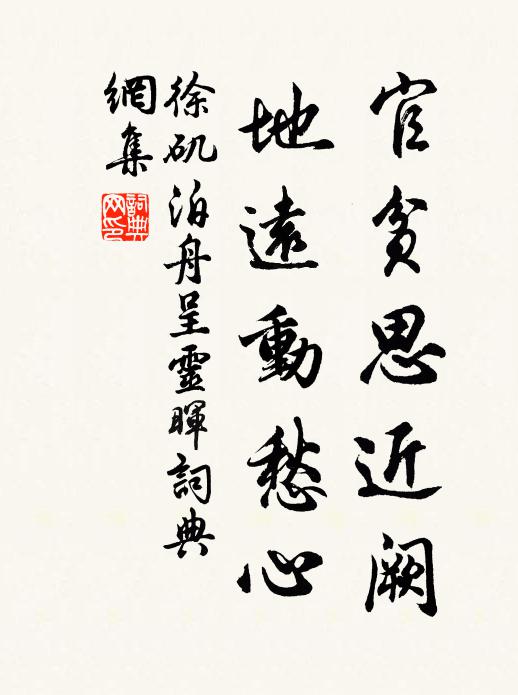 官貧思近阙
地遠動愁心
徐矶泊舟呈靈暉詞典
網集
詞典
网印